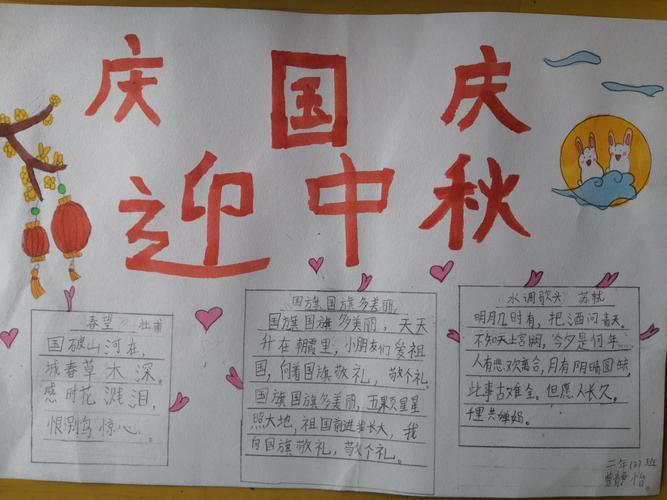 庆国庆
迎中秋
春望 杜甫
国破山河在,
城春草木深。
感时花溅泪,
恨别鸟惊心。
国旗国旗多美丽
国旗国旗多美丽,天天
升在朝霞里,小朋友们爱祖
国,向着国旗敬礼,敬个礼。
国旗国旗多美丽,五颗星星
照大地,祖国前进我长大,我
向国旗敬礼,敬个礼。
水调歌头 苏轼
明月几时有,把酒问青天。
不知天上宫阙,今夕是何年…
人有悲欢离合,月有阴晴圆缺,
此事古难全。但愿人长久,
千里共婵娟。
二年(3)班
静怡